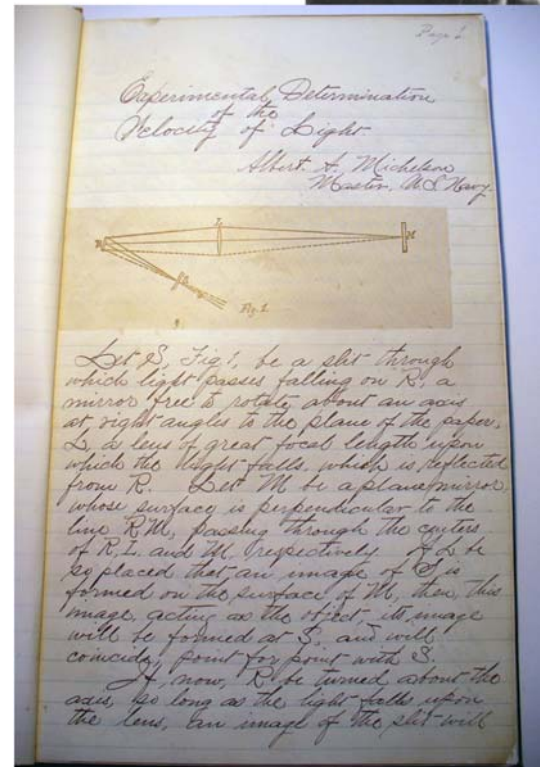 Page 1
Experimental Determination
of the
Velocity of Light
Albert. A. Michelson
Master, U.S. Navy.
R
L
M
S
Fig. 1
Let S, Fig. 1, be a slit through
which light passes falling on R, a
mirror free to rotate about an axis
at right angles to the plane of the paper,
L, a lens of great focal length upon
which the light falls, which is reflected
from R. Let M be a plane mirror
whose surface is perpendicular to the
line RM, passing through the centers
of R, L, and M, respectively. If L be
so placed that an image of S is
formed on the surface of M, then, this
image, acting as the object, its image
will be formed at S, and will
coincide, point for point with S.
If, now, R be turned about the
axis, so long as the light falls upon
the lens, an image of the slit will